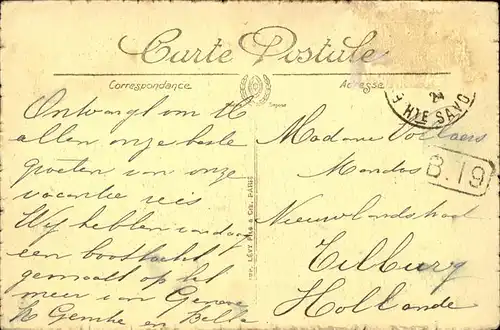 Carte Postale
Correspondance
Adresse
24
Hte SAVO
B.19
Ontvangt van
allen onze beste
groeten van onze
vacantie reis
Wij hebben vandaag
een boottocht
gemaakt op het
meer van Geneve
en Bella
IMP. LÉVY FILS & CIE. PARIS
Madame
Nieuwlandstraat
Tilburg
Hollande